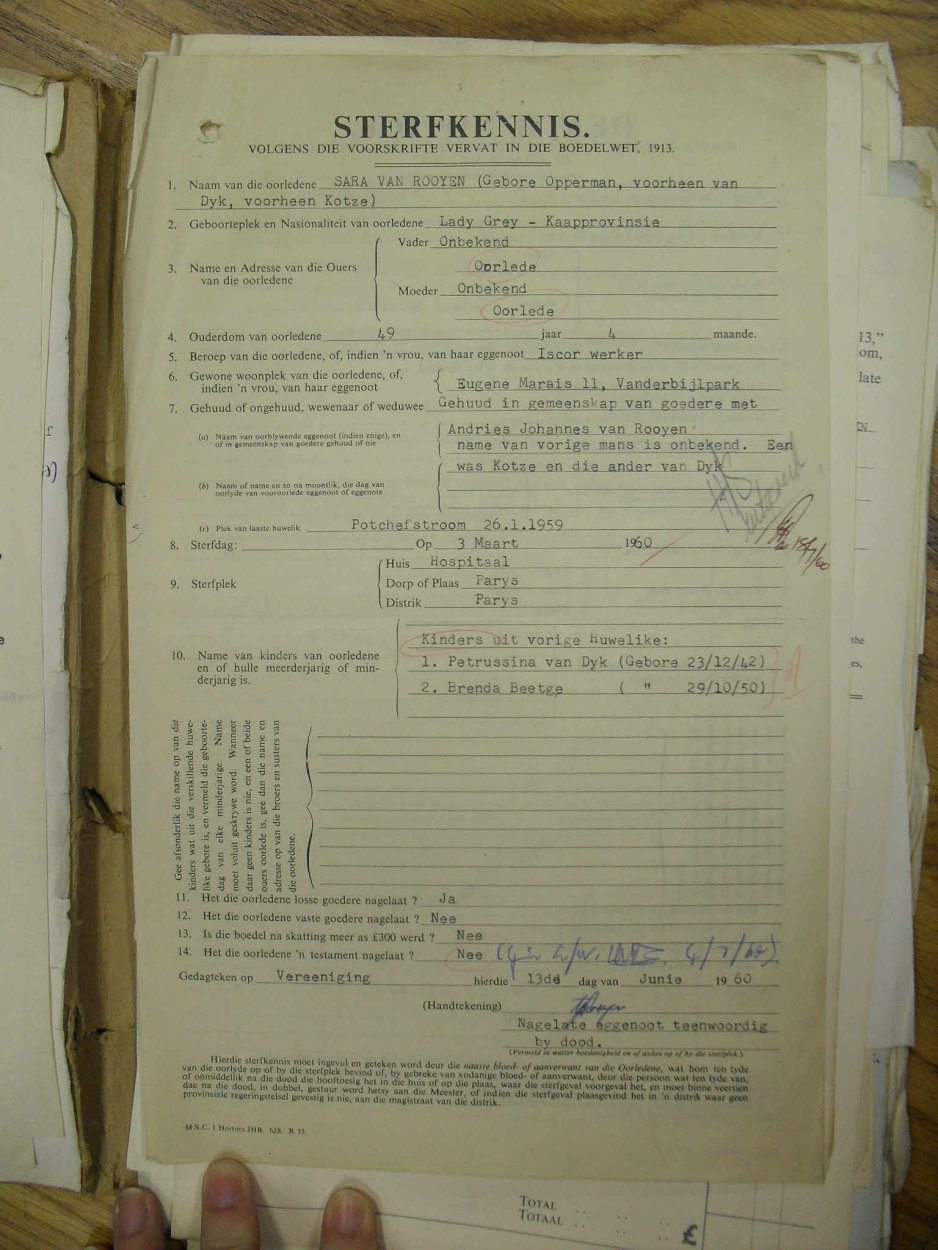 STERFKENNIS.
VOLGENS DIE VOORSKRIFTE VERVAT IN DIE BOEDELWET, 1913.
1. Naam van die oorledene SARA VAN ROOYEN (Gebore Opperman, voorheen van
Dyk, voorheen Kotze)
2. Geboorteplek en Nasionaliteit van oorledene Lady Grey - Kaapprovinsie
3. Name en Adresse van die Ouers van die oorledene
Vader Onbekend
Oorlede
Moeder Onbekend
Oorlede
4. Ouderdom van oorledene 49 jaar 4 maande.
5. Beroep van die oorledene, of, indien 'n vrou, van haar eggenoot Iscor werker
6. Gewone woonplek van die oorledene, of,
indien 'n vrou, van haar eggenoot Eugene Marais 11, Vanderbijlpark
7. Gehuud of ongehuud, wewenaar of weduwee Gehuud in gemeenskap van goedere met
(a) Naam van oorblywende eggenoot (indien enige), en
of in gemeenskap van goedere gehuud of nie
Andries Johannes van Rooyen
name van vorige mans is onbekend. Een
was Kotze en die ander van Dyk
(b) Naam of name en so na moontlik, die dag van
oorlyde van vooroorlede eggenoot of eggenote
(c) Plek van laaste huwelik Potchefstroom 26.1.1959
8. Sterfdag: Op 3 Maart 1960
9. Sterfplek
Huis Hospitaal
Dorp of Plaas Parys
Distrik Parys
10. Name van kinders van oorledene
en of hulle meerderjarig of min-
derjarig is.
Kinders uit vorige huwelike:
1. Petrussina van Dyk (Gebore 23/12/42)
2. Brenda Beetge ( " 29/10/50)
Gee afsonderlik die name op van die
kinders wat uit die verskillende huwe-
like gebore is, en vermeld die geboorte-
dag van elke minderjarige. Name
moet voluit geskrywe word. Wanneer
daar geen kinders is nie, en een of beide
ouers oorlede is, gee dan die name en
adresse op van die broers en susters van
die oorledene.
11. Het die oorledene losse goedere nagelaat ? Ja
12. Het die oorledene vaste goedere nagelaat ? Nee
13. Is die boedel na skatting meer as £300 werd ? Nee
14. Het die oorledene 'n testament nagelaat ? Nee
Gedagteken op Vereeniging hierdie 13de dag van Junie 1960
(Handtekening)
Nagelate eggenoot teenwoordig
by dood.
(Vermeld in watter hoedanigheid en of aldan op of by die sterfplek.)
Hierdie sterfkennis moet ingevul en geteken word deur die naaste bloed- of aanverwant van die Oorledene, wat hom ten tyde
van die oorlyde op of by die sterfplek bevind of, by gebreke van sodanige bloed- of aanverwant, deur die persoon wat ten tyde van,
of onmiddellik na die dood die hooftoesig het in die huis of op die plaas, waar die sterfgeval voorgeval het, en moet binne veertien
dae na die dood, in dubbel, gestuur word hetsy aan die Meester, of indien die sterfgeval plaasgevind het in 'n distrik waar geen
provinsiale regeringstelsel gevestig is nie, aan die magistraat van die distrik.
M.S.C. 1 Hortors JHB. 628. R 35.
13,"
om,
late
the
es,
TOTAL
TOTAAL
£